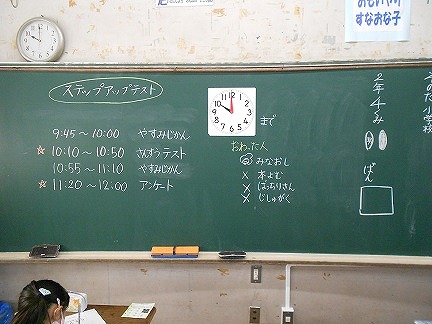 すなおな子
ステップアップテスト
9:45～10:00 やすみじかん
☆10:10～10:50 さんすうテスト
10:55～11:10 やすみじかん
☆11:20～12:00 アンケート
12 1 2 3 4 5 6 7 8 9 10 11
まで
おわった人
◎ みなおし
× 本よむ
× ばっちりさん
× じしゅがく
2年4くみ
ばん